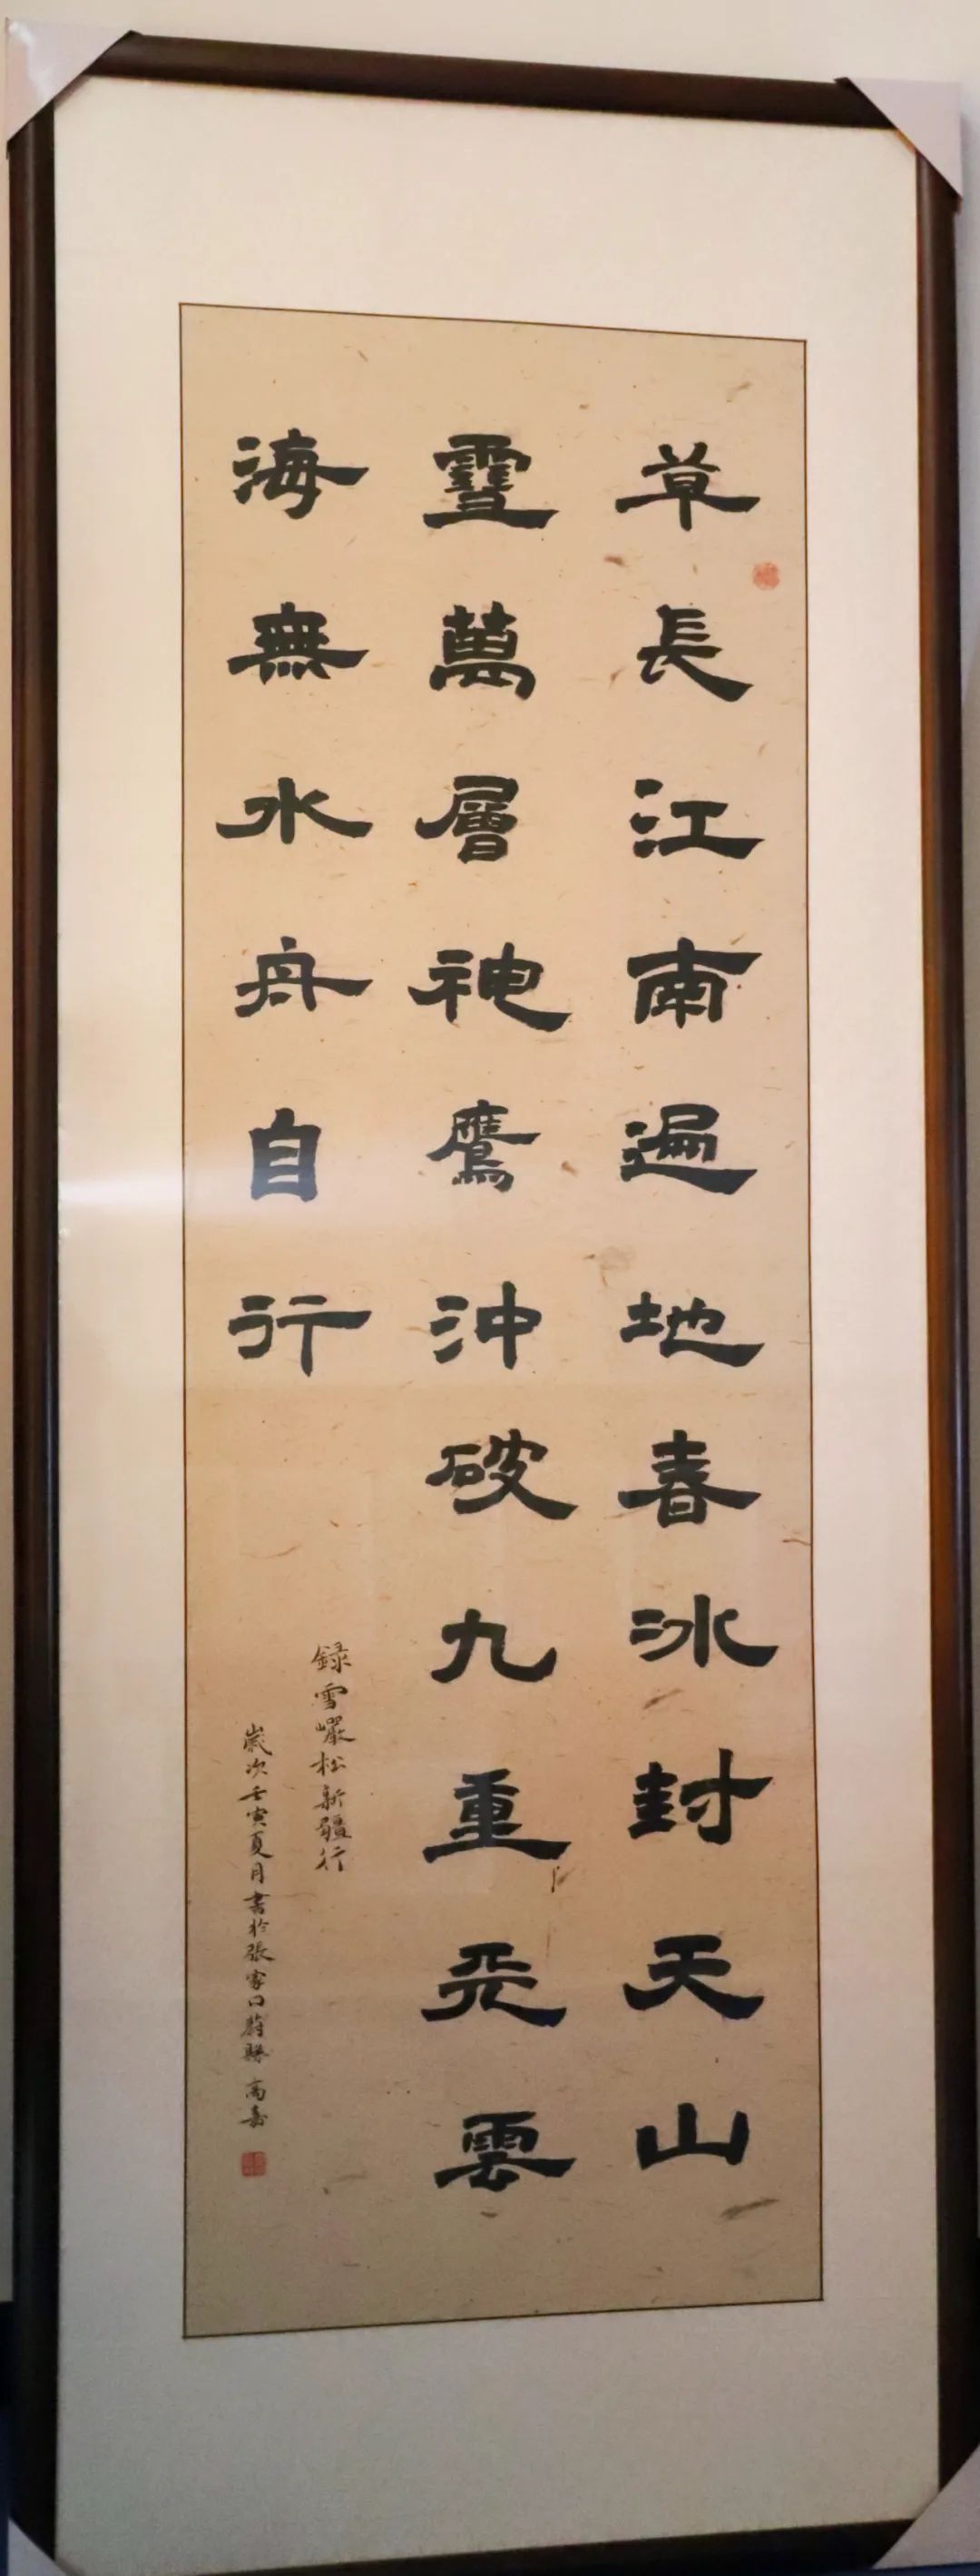 草長江南遍地春冰封天山
雪萬層神鷹沖破九重天雲
海無水舟自行
録雪巖松新疆行
歲次壬寅夏月書於張家口蔚縣 高嵩